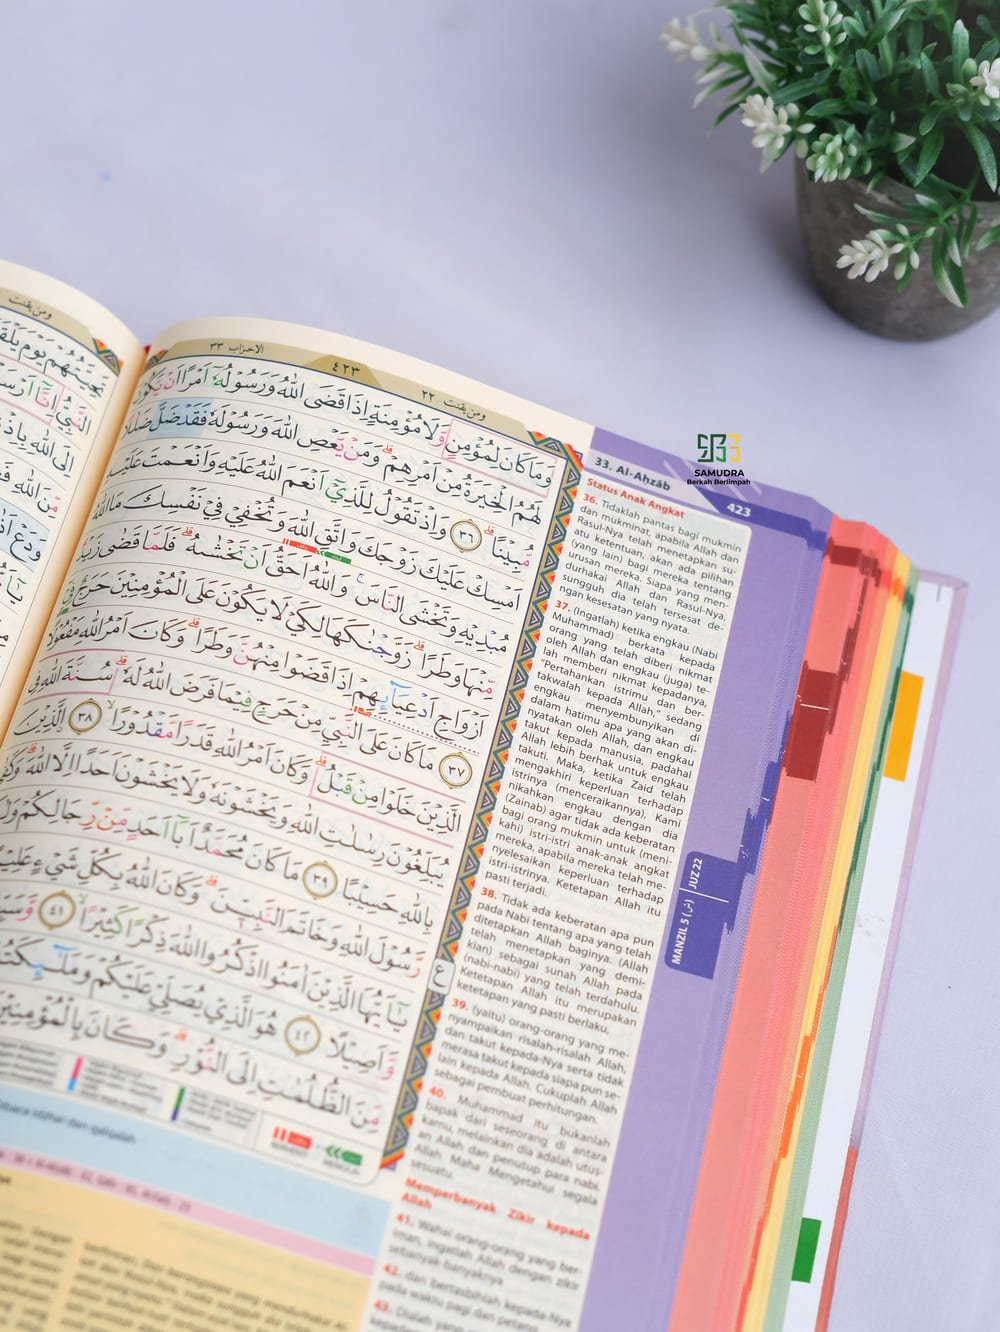 ومن يقنت ٢٢
٤٢٣
الاحزاب ٣٣
وَمَا كَانَ لِمُؤْمِنٍ وَّلَا مُؤْمِنَةٍ اِذَا قَضَى اللّٰهُ وَرَسُوْلُهٗٓ اَمْرًا اَنْ
لَهُمُ الْخِيَرَةُ مِنْ اَمْرِهِمْ ۗ وَمَنْ يَّعْصِ اللّٰهَ وَرَسُوْلَهٗ فَقَدْ ضَلَّ
مُّبِيْنًا ۗ ٣٦ وَاِذْ تَقُوْلُ لِلَّذِيْٓ اَنْعَمَ اللّٰهُ عَلَيْهِ وَاَنْعَمْتَ
اَمْسِكْ عَلَيْكَ زَوْجَكَ وَاتَّقِ اللّٰهَ وَتُخْفِيْ فِيْ نَفْسِكَ مَا اللّٰهُ
مُبْدِيْهِ وَتَخْشَى النَّاسَ ۚ وَاللّٰهُ اَحَقُّ اَنْ تَخْشٰىهُ ۗ فَلَمَّا قَضٰى زَيْدٌ
مِّنْهَا وَطَرًا ۗ زَوَّجْنٰكَهَا لِكَيْ لَا يَكُوْنَ عَلَى الْمُؤْمِنِيْنَ حَرَجٌ
اَزْوَاجِ اَدْعِيَاۤىِٕهِمْ اِذَا قَضَوْا مِنْهُنَّ وَطَرًا ۗ وَكَانَ اَمْرُ اللّٰهِ مَفْعُوْلًا
٣٧ مَا كَانَ عَلَى النَّبِيِّ مِنْ حَرَجٍ فِيْمَا فَرَضَ اللّٰهُ لَهٗ ۗ سُنَّةَ اللّٰهِ فِى
الَّذِيْنَ خَلَوْا مِنْ قَبْلُ ۗ وَكَانَ اَمْرُ اللّٰهِ قَدَرًا مَّقْدُوْرًا ۙ ٣٨ الَّذِيْنَ
يُبَلِّغُوْنَ رِسٰلٰتِ اللّٰهِ وَيَخْشَوْنَهٗ وَلَا يَخْشَوْنَ اَحَدًا اِلَّا اللّٰهَ ۗ
بِاللّٰهِ حَسِيْبًا ٣٩ مَا كَانَ مُحَمَّدٌ اَبَآ اَحَدٍ مِّنْ رِّجَالِكُمْ
رَّسُوْلَ اللّٰهِ وَخَاتَمَ النَّبِيّٖنَ ۗ وَكَانَ اللّٰهُ بِكُلِّ شَيْءٍ
يٰٓاَيُّهَا الَّذِيْنَ اٰمَنُوا اذْكُرُوا اللّٰهَ ذِكْرًا كَثِيْرًا ۙ ٤١
وَّاَصِيْلًا ٤٢ هُوَ الَّذِيْ يُصَلِّيْ عَلَيْكُمْ
مِّنَ الظُّلُمٰتِ اِلَى النُّوْرِ ۗ وَكَانَ بِالْمُؤْمِنِيْنَ
ع
33. Al-Aḥzāb
423
Status Anak Angkat
36. Tidaklah pantas bagi mukmin
dan mukminat, apabila Allah dan
Rasul-Nya telah menetapkan su-
atu ketentuan, akan ada pilihan
(yang lain) bagi mereka tentang
urusan mereka. Siapa yang men-
durhakai Allah dan Rasul-Nya,
sungguh dia telah tersesat de-
ngan kesesatan yang nyata.
37. (Ingatlah) ketika engkau (Nabi
Muhammad) berkata kepada
orang yang telah diberi nikmat
oleh Allah dan engkau (juga) te-
lah memberi nikmat kepadanya,
"Pertahankan istrimu dan ber-
takwalah kepada Allah," sedang
engkau menyembunyikan di
dalam hatimu apa yang akan di-
nyatakan oleh Allah, dan engkau
takut kepada manusia, padahal
Allah lebih berhak untuk engkau
takuti. Maka, ketika Zaid telah
mengakhiri keperluan terhadap
istrinya (menceraikannya), Kami
nikahkan engkau dengan dia
(Zainab) agar tidak ada keberatan
bagi orang mukmin untuk (meni-
kahi) istri-istri anak-anak angkat
mereka, apabila mereka telah me-
nyelesaikan keperluan terhadap
istri-istrinya. Ketetapan Allah itu
pasti terjadi.
38. Tidak ada keberatan apa pun
pada Nabi tentang apa yang telah
ditetapkan Allah baginya. (Allah
telah menetapkan yang demi-
kian) sebagai sunah Allah pada
(nabi-nabi) yang telah terdahulu.
Ketetapan Allah itu merupakan
ketetapan yang pasti berlaku,
39. (yaitu) orang-orang yang me-
nyampaikan risalah-risalah Allah,
dan takut kepada-Nya serta tidak
merasa takut kepada siapa pun se-
lain kepada Allah. Cukuplah Allah
sebagai pembuat perhitungan.
40. Muhammad itu bukanlah
bapak dari seseorang di antara
kamu, melainkan dia adalah utus-
an Allah dan penutup para nabi.
Allah Maha Mengetahui segala
sesuatu.
Memperbanyak Zikir kepada
Allah
41. Wahai orang-orang yang ber-
iman, ingatlah Allah dengan zikir
sebanyak-banyaknya
42. dan bertasbihlah kepada-Nya
pada waktu pagi dan petang.
43. Dialah yang
MANZIL 5 (ش) JUZ 22
SAMUDRA
Berkah Berlimpah